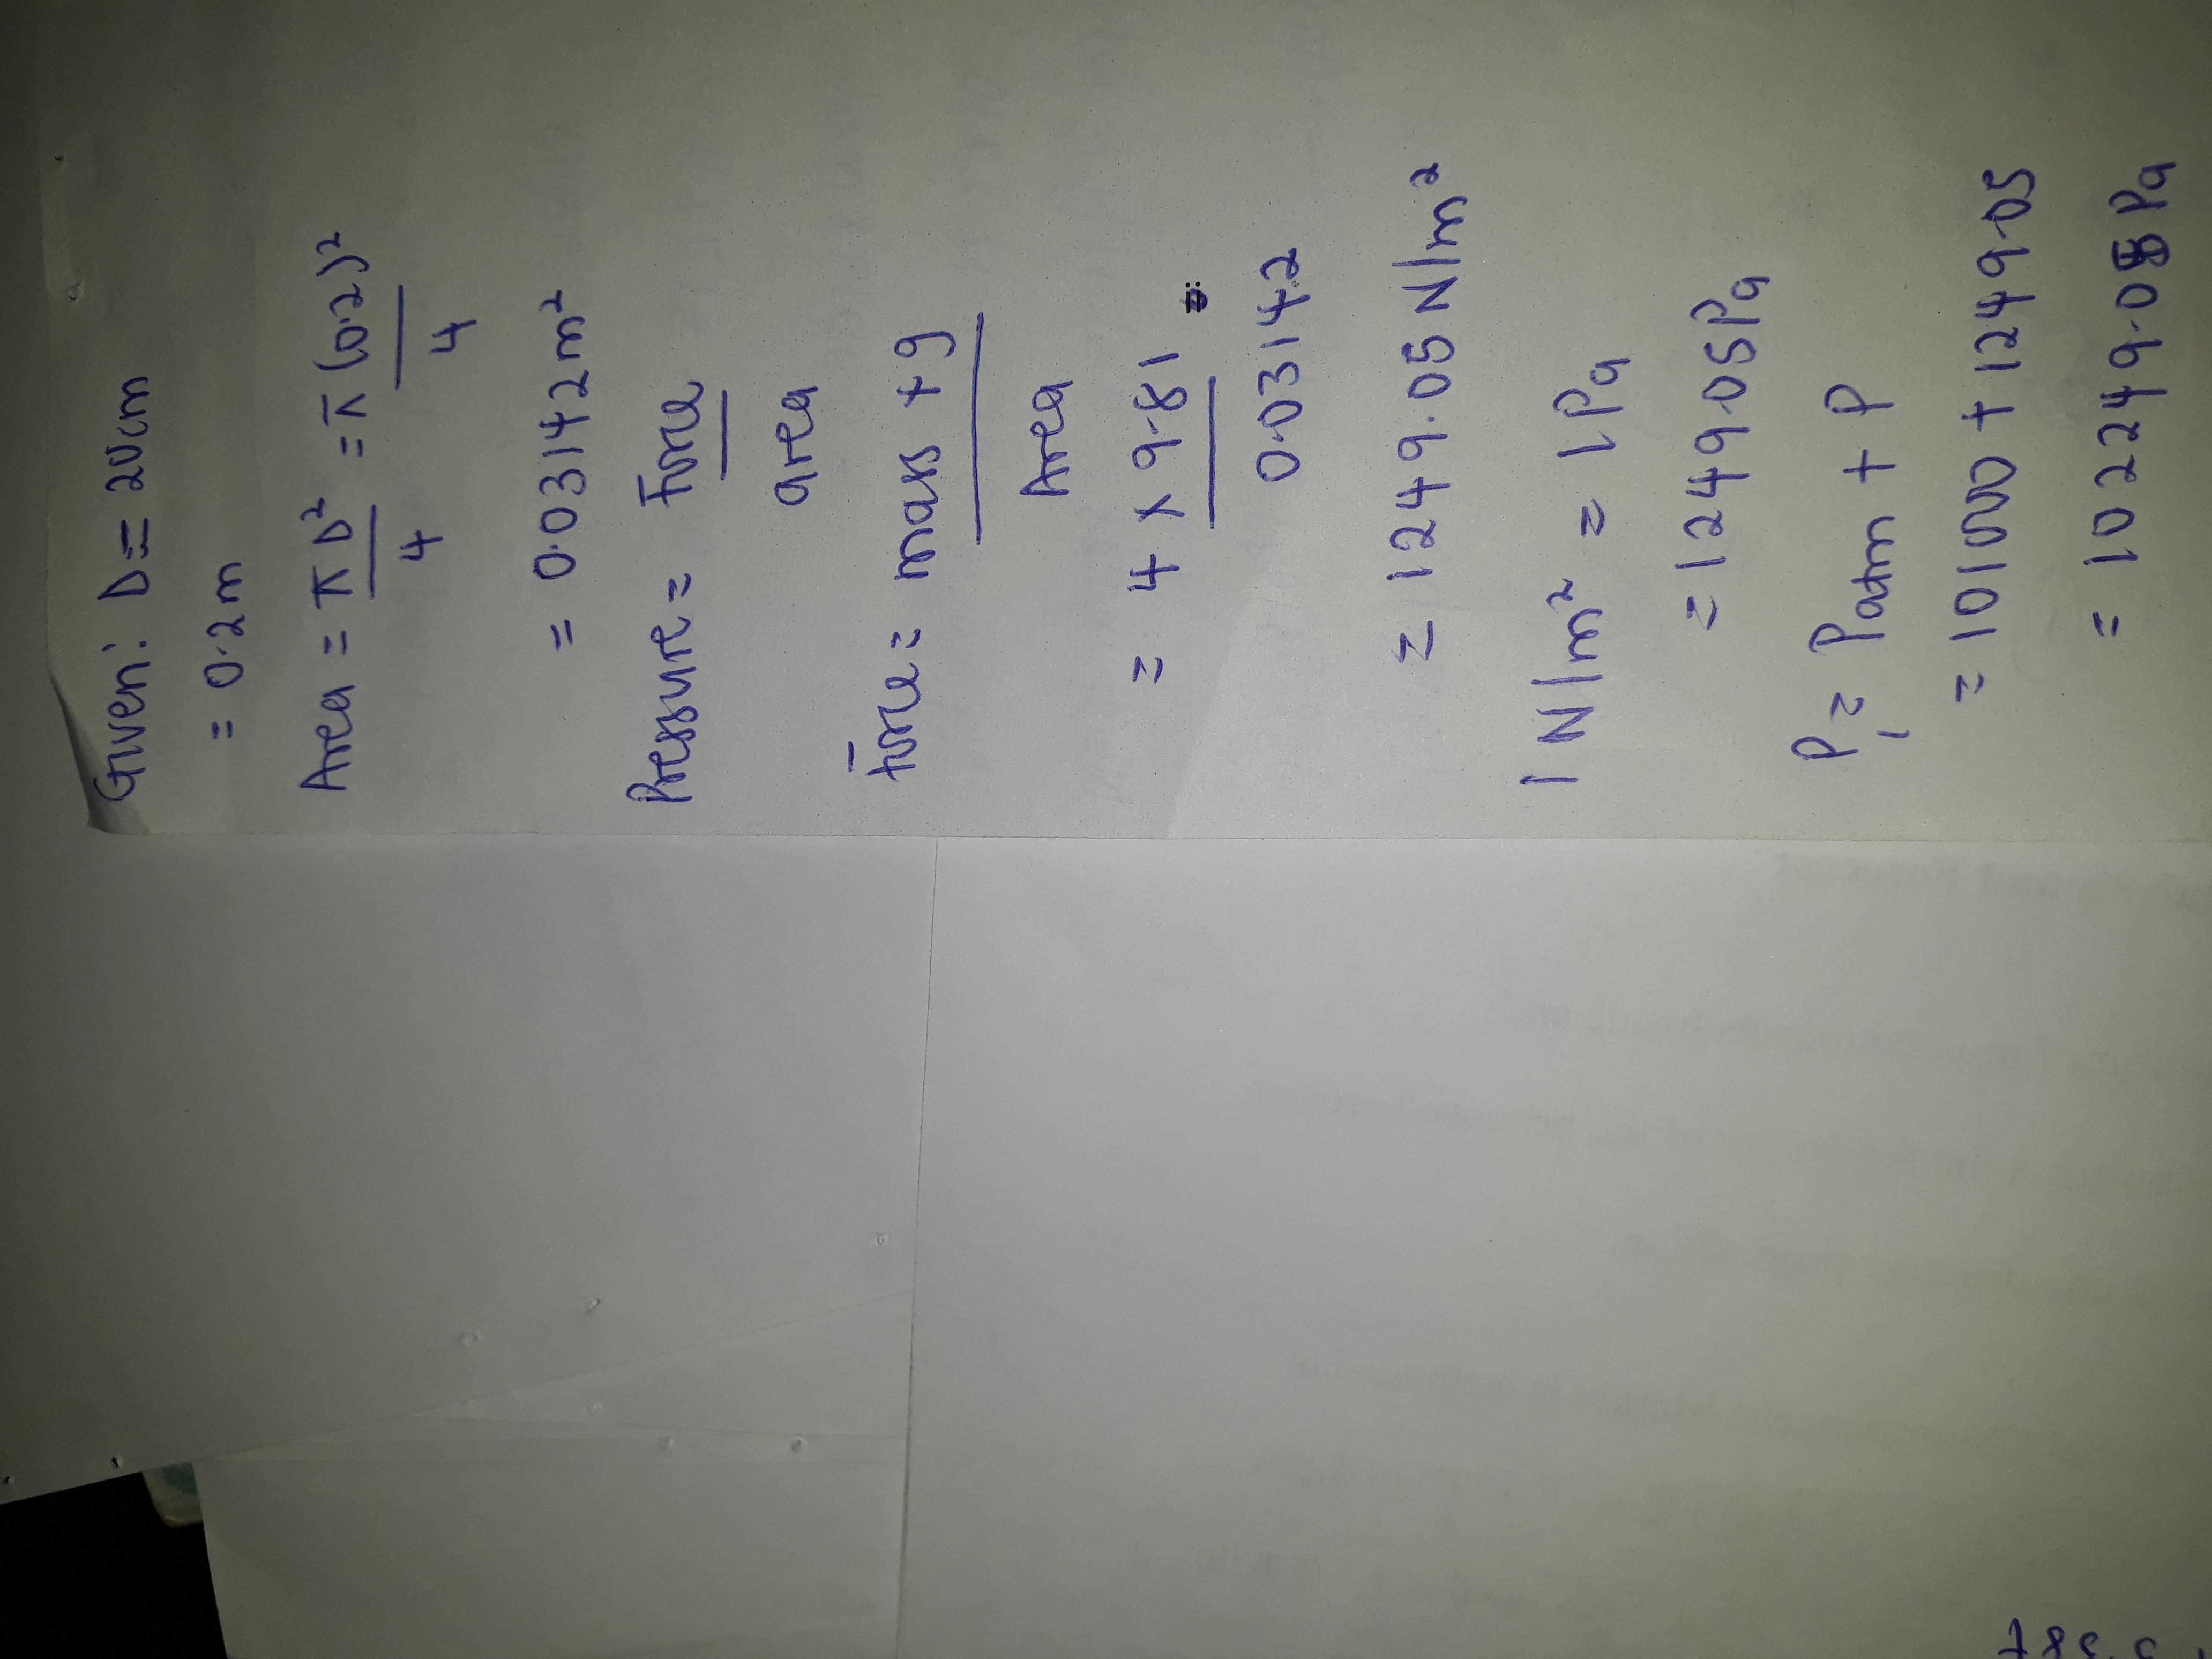 Given: D = 20cm
= 0.2m
Area = πD² = π(0.2)²
4 4
= 0.03142m²
Pressure = Force
area
Force = mass + g
Area
= 4 x 9.81
0.03142
= 1249.05 N/m²
1 N/m² = 1 Pa
= 1249.05 Pa
P₁ = Patm + P
= 101000 + 1249.05
= 102249.05 Pa